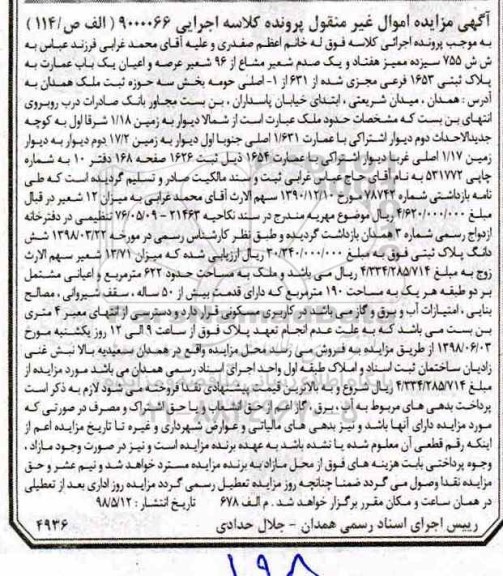 آگهی مزایده اموال غیر منقول پرونده کلاسه اجرایی ۹۰۰۰۰۶۶ ( الف ص/۱۱۴ )
به موجب پرونده اجرائی کلاسه فوق له خانم اعظم صفدری و علیه آقای محمد غرابی فرزند عباس به
ش ش ۷۵۵ سیزده ممیز هفتاد و یک صدم شعیر مشاع از ۹۶ شعیر عرصه و اعیان یک باب عمارت به
پلاک ثبتی ۱۶۵۳ فرعی مجزی شده از ۶۳۱ از ۱- اصلی حومه بخش سه حوزه ثبت ملک همدان به
آدرس : همدان ، میدان شریعتی ، ابتدای خیابان پاسداران ، بن بست مجاور بانک صادرات درب روبروی
انتهای بن بست که مشخصات حدود ملک عبارت است از شمالا دیوار به زمین ۱/۱۸ شرقا اول به کوچه
جدیدالاحداث دوم دیوار اشتراکی با عمارت ۱/۶۳۱ اصلی جنوبا اول دیوار به زمین ۱۷/۲ دوم دیوار به دیوار
زمین ۱/۱۷ اصلی غربا دیوار اشتراکی با عمارت ۱۶۵۴ ذیل ثبت ۱۶۲۶ صفحه ۱۶۸ دفتر ۱۰ به شماره
چاپی ۵۳۱۷۷۲ به نام آقای حاج عباس غرابی ثبت و سند مالکیت صادر و تسلیم گردیده است که طی
نامه بازداشتی شماره ۷۸۷۴۲ مورخ ۱۳۹۰/۱۲/۱۰ سهم الارث آقای محمد غرابی به میزان ۱۲ شعیر در قبال
مبلغ ۴/۶۲۰/۰۰۰/۰۰۰ ریال موضوع مهریه مندرج در سند نکاحیه ۲۱۴۶۳ – ۷۶/۰۵/۰۹ تنظیمی در دفترخانه
ازدواج رسمی شماره ۳ همدان بازداشت گردیده و طبق نظر کارشناس رسمی در مورخه ۱۳۹۸/۰۳/۲۲ شش
دانگ پلاک ثبتی فوق به مبلغ ۳۰/۳۴۰/۰۰۰/۰۰۰ ریال ارزیابی شده که میزان ۱۳/۷۱ شعیر سهم الارث
زوج به مبلغ ۴/۳۳۴/۲۸۵/۷۱۴ ریال می باشد و ملک به مساحت حدود ۶۲۲ مترمربع و اعیانی مشتمل
بر دو طبقه هر یک به مساحت ۱۹۰ مترمربع که دارای قدمت بیش از ۵۰ ساله ، سقف شیروانی ، مصالح
بنایی ، امتیازات آب و برق و گاز می باشد در کاربری مسکونی قرار دارد و دسترسی از انتهای معبر ۴ متری
بن بست می باشد که به علت عدم انجام تعهد پلاک فوق از ساعت ۹ الی ۱۲ روز یکشنبه مورخ
۱۳۹۸/۰۶/۰۳ از طریق مزایده به فروش می رسد محل مزایده واقع در همدان سعیدیه بالا نبش غنی
زادیان ساختمان ثبت اسناد و املاک طبقه اول واحد اجرای اسناد رسمی همدان می باشد مورد مزایده از
مبلغ ۴/۳۳۴/۲۸۵/۷۱۴ ریال شروع و به بالاترین قیمت پیشنهادی نقدا فروخته می شود لازم به ذکر است
پرداخت بدهی های مربوط به آب ، برق ، گاز اعم از حق انشعاب و یا حق اشتراک و مصرف در صورتی که
مورد مزایده دارای آنها باشد و نیز بدهی های مالیاتی و عوارض شهرداری و غیره تا تاریخ مزایده اعم از
اینکه رقم قطعی آن معلوم شده یا نشده باشد به عهده برنده مزایده است و نیز در صورت وجود مازاد ،
وجوه پرداختی بابت هزینه های فوق از محل مازاد به برنده مزایده مسترد خواهد شد و نیم عشر و حق
مزایده نقدا وصول می گردد ضمنا چنانچه روز مزایده تعطیل رسمی گردد مزایده روز اداری بعد از تعطیلی
در همان ساعت و مکان مقرر برگزار خواهد شد . م الف ۶۷۸ تاریخ انتشار : ۹۸/۵/۱۲
رییس اجرای اسناد رسمی همدان – جلال حدادی
۴۹۳۶
۱۹۸